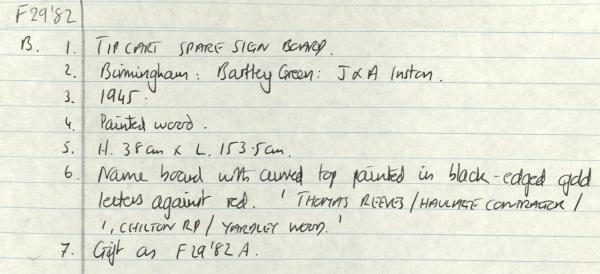 F29'82
B. 1. TIP CART SPARE SIGN BOARD.
2. Birmingham: Bartley Green: J & A Inston.
3. 1945.
4. Painted wood.
5. H. 38cm x L. 153.5cm.
6. Name board with curved top painted in black-edged gold
letters against red. 'THOMAS REEVES/HAULAGE CONTRACTOR/
1, CHILTON RD/ YARDLEY WOOD.'
7. Gift as F29'82A.